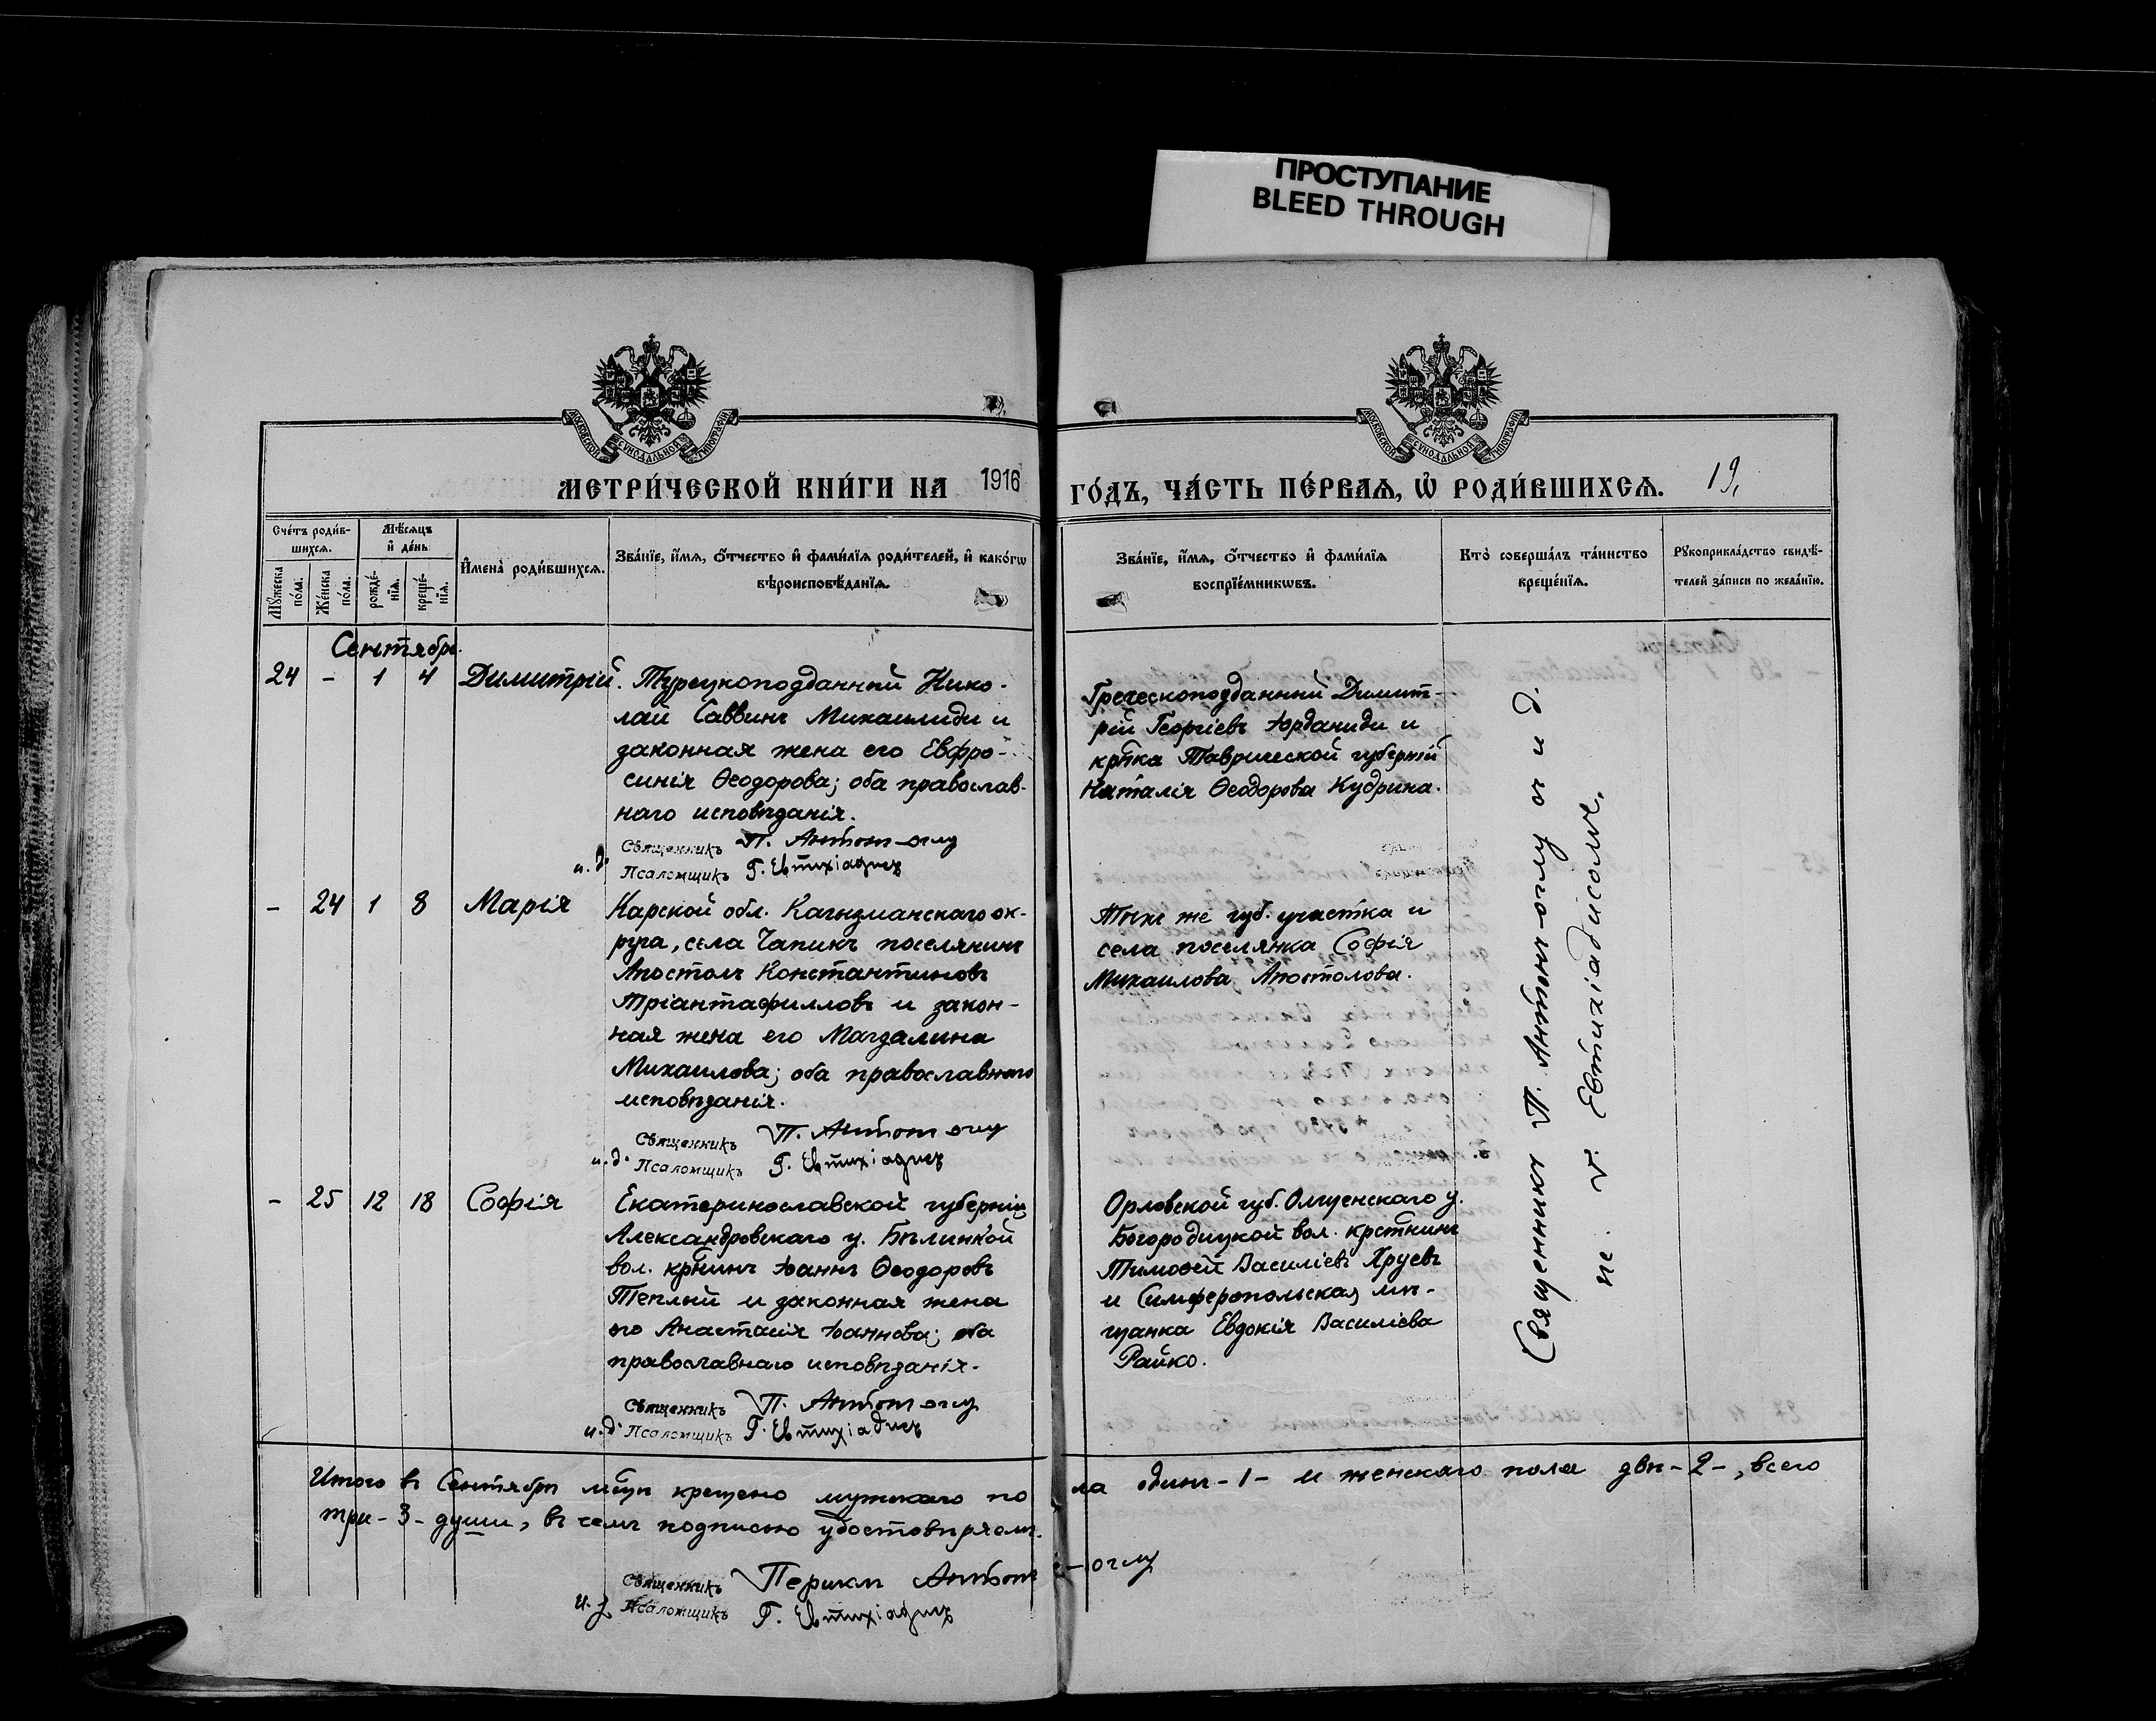 ПРОСТУПАНИЕ
BLEED THROUGH
МОСКОВСКОЙ СУНОДАЛЬНОЙ ТИПОГРАФИИ
МОСКОВСКОЙ СУНОДАЛЬНОЙ ТИПОГРАФИИ
МЕТРИ́ЧЕСКОЙ КНИ́ГИ НА 1916 ГО́ДЪ, ЧА́СТЬ ПЕ́РВАѦ, Ѡ҆ РОДИ́ВШИХСѦ. 19,
Сче́тъ роди́в-
шихсѧ.
Мѣ́сѧцъ
и҆ де́нь
Мꙋ́жеска
по́ла.
Же́нска
по́ла.
рожде́-
нїѧ.
креще́-
нїѧ.
И҆мена̀ роди́вшихсѧ.
Зва́нїе, и҆́мѧ, ѻ҆́тчество и҆ фами́лїѧ роди́телей, и҆ како́гѡ
вѣроисповѣ́данїѧ.
Зва́нїе, и҆́мѧ, ѻ҆́тчество и҆ фами́лїѧ
воспрїе́мникѡвъ.
Кто̀ соверша́лъ та́инство
креще́нїѧ.
Рꙋкоприкла́дство свидѣ́-
телей за́писи по жела́нїю.
Сентябрь.
24 - 1 4 Димитрій.
Турецкоподданный Нико-
лай Саввинъ Михаилиди и
законная жена его Евфро-
синія Ѳеодорова; оба православ-
наго исповѣданія.
Священникъ П. Антон-оглу
и.д. Псаломщикъ Г. Евтихіадисъ
Греческоподданный Димит-
рій Георгіевъ Іорданиди и
кр̃нка Таврической губерніи
Наталія Ѳеодорова Кудрина.
- 24 1 8 Марія
Карской обл. Кагызманскаго ок-
руга, села Чапикъ поселянинъ
Апостолъ Константиновъ
Тріантафилловъ и закон-
ная жена его Магдалина
Михаилова; оба православнаго
исповѣданія.
Священникъ П. Антон оглу
и.д. Псаломщикъ Г. Евтихіадисъ
же губ. участка и
села поселянка Софія
Михаилова Апостолова.
- 25 12 18 Софія
Екатеринославской губерніи
Александровскаго у. Бѣлинкой
вол. кр̃нинъ Іоаннъ Ѳеодоровъ
Теплый и законная жена
его Анастасія Іоаннова; оба
православнаго исповѣданія.
Священникъ П. Антон оглу
и.д. Псаломщикъ Г. Евтихіадисъ
Орловской губ. у.
Богородицкой вол. крстнинъ
Тимоѳей Василіевъ Хруевъ
и Симферопольская мѣ-
щанка Евдокія Василіева
Райко.
Священникъ П. Антон-оглу и и д.
пс. Г. Евтихіадисомъ.
Итого въ Сентябрѣ мѣцѣ крещено мужскаго пола одинъ -1- и женскаго пола двѣ -2-, всего
три -3- души, въ чемъ подписью удостовѣряемъ.
Священникъ Периклъ Антон-оглу
и.д. Псаломщикъ Г. Евтихіадисъ